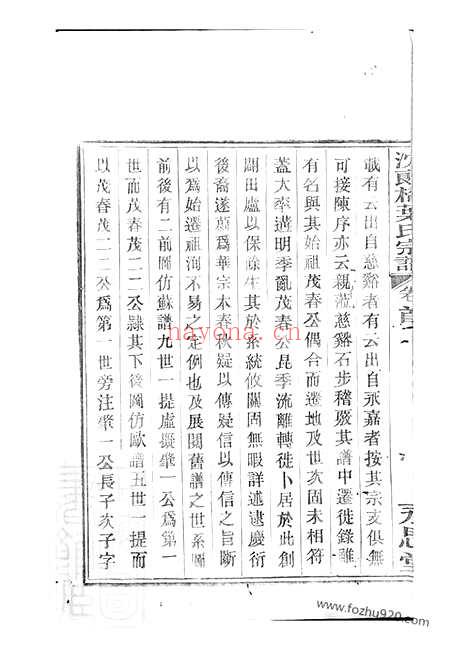 沈郎橋葉氏宗譜 卷首
載有云出自慈谿者有云出自永嘉者按其宗支俱無
可接陳序亦云親蒞慈谿石步稽覈其譜中遷徙錄雖
有名與其始祖茂春公偶合而遷地及世次固未相符
蓋大率遭明季亂茂春公昆季流離轉徙卜居於此創
闢田廬以保餘生其於系統攸關固無暇詳述逮慶衍
後裔遂蔚爲華宗本春秋疑以傳疑信以傳信之旨斷
以爲始遷祖洵不易之定例也及展閱舊譜之世系圖
前後有二前圖仿蘇譜九世一提虛擬肇一公爲第一
世而茂春茂二二公隷其下後圖仿歐譜五世一提而
以茂春茂二二公爲第一世旁注肇一公長子次子字
思堂
nayona.cn
www.fozhu920.com